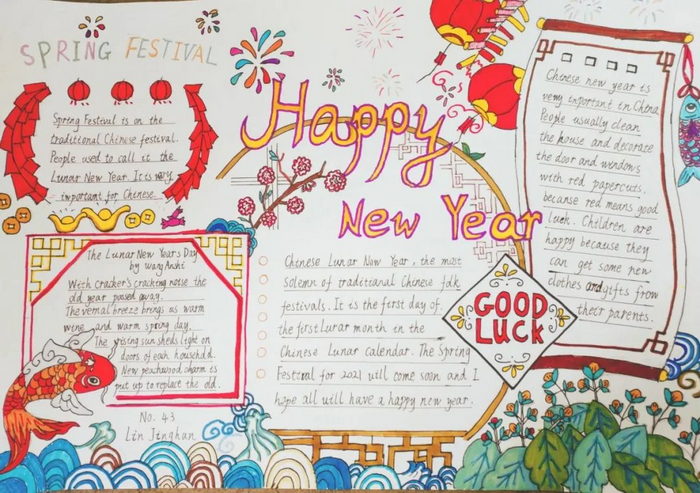 SPRING FESTIVAL
Spring Festival is on the
traditional Chinese festival.
People used to call it the
Lunar New Year. It is very
important for Chinese.
Happy
New Year
The Lunar New Year's Day
by Wang Anshi
With cracker's cracking noise the
old year passed away.
The vernal breeze brings us warm
wine and warm spring day.
The rising sun sheds light on
doors of each househld.
New peachwood charm is
put up to replace the old.
No. 43
Lin Jinghan
Chinese Lunar New Year, the most
solemn of traditional Chinese folk
festivals. It is the first day of
the first lunar month in the
Chinese Lunar calendar. The Spring
Festival for 2021 will come soon and I
hope all will have a happy new year.
GOOD
LUCK
Chinese new year is
very important in China
People usually clean
the house and decorate
the door and windows
with red papercuts,
because red means good
luck. Children are
happy because they
can get some new
clothes and gifts from
their parents.